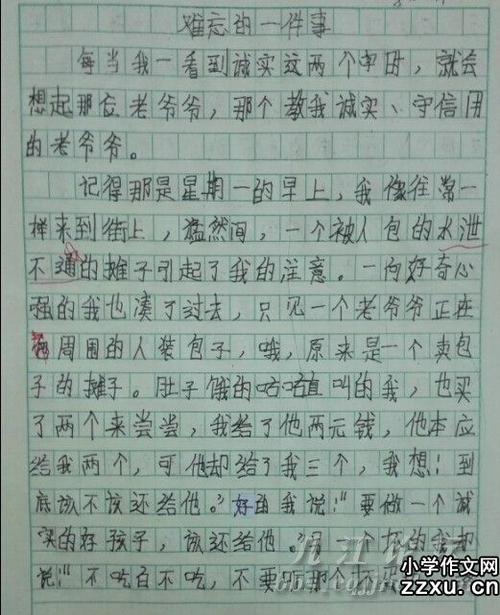 难忘的一件事
每当我一看到诚实这两个字时，就会
想起那位老爷爷，那个教我诚实、守信用
的老爷爷。
记得那是星期一的早上，我像往常一
样来到街上，猛然间，一个被人包的水泄
不通的摊子引起了我的注意。一向好奇心
强的我也凑了过去，只见一个老爷爷正在
周围的人装包子，哦，原来是一个卖包
子的摊子。肚子饿的咕咕直叫的我，也买
了两个来尝尝，我给了他两元钱，他本应
给我两个，可他却给了我三个，我想！到
底该不该还给他。”好的我说！“要做一个诚
实的好孩子，该还给他。”另一个坏的我却
说！“不吃白不吃，不要 那个不
小学作文网
zzxu.cn